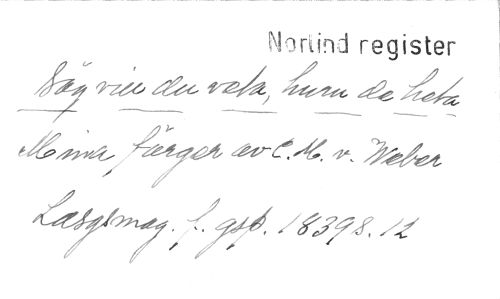 Norlind register
Säg vill du veta, huru de heta
Mina färger av C. M. v. Weber
Laesgsmag. f. gsp. 1839 s. 12